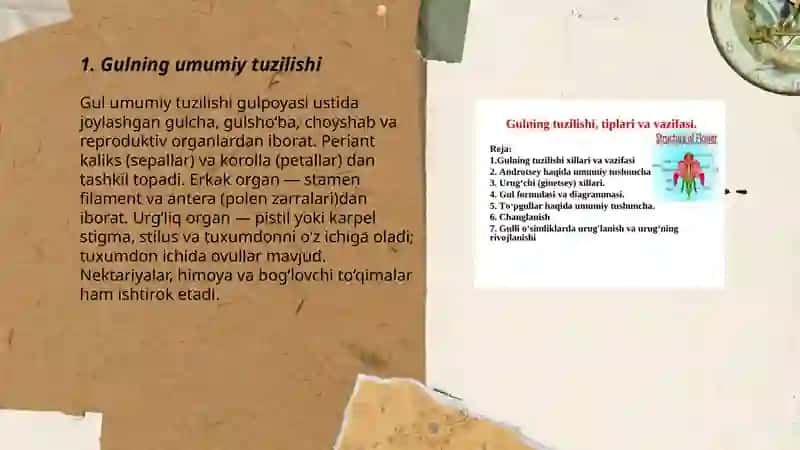 1. Gulning umumiy tuzilishi
Gul umumiy tuzilishi gulpoyasi ustida
joylashgan gulcha, gulsho‘ba, choyshab va
reproduktiv organlardan iborat. Periant
kaliks (sepallar) va korolla (petallar) dan
tashkil topadi. Erkak organ — stamen
filament va antera (polen zarralari)dan
iborat. Urg‘liq organ — pistil yoki karpel
stigma, stilus va tuxumdonni o'z ichiga oladi;
tuxumdon ichida ovullar mavjud.
Nektariyalar, himoya va bog‘lovchi to‘qimalar
ham ishtirok etadi.
Gulning tuzilishi, tiplari va vazifasi.
Structure of Flower
Reja:
1.Gulning tuzilishi xillari va vazifasi
2. Androtsey haqida umumiy tushuncha
3. Urug‘chi (ginetsey) xillari.
4. Gul formulasi va diagrammasi.
5. To‘pgullar haqida umumiy tushuncha.
6. Changlanish
7. Gulli o‘simliklarda urug'lanish va urug‘ning
rivojlanishi